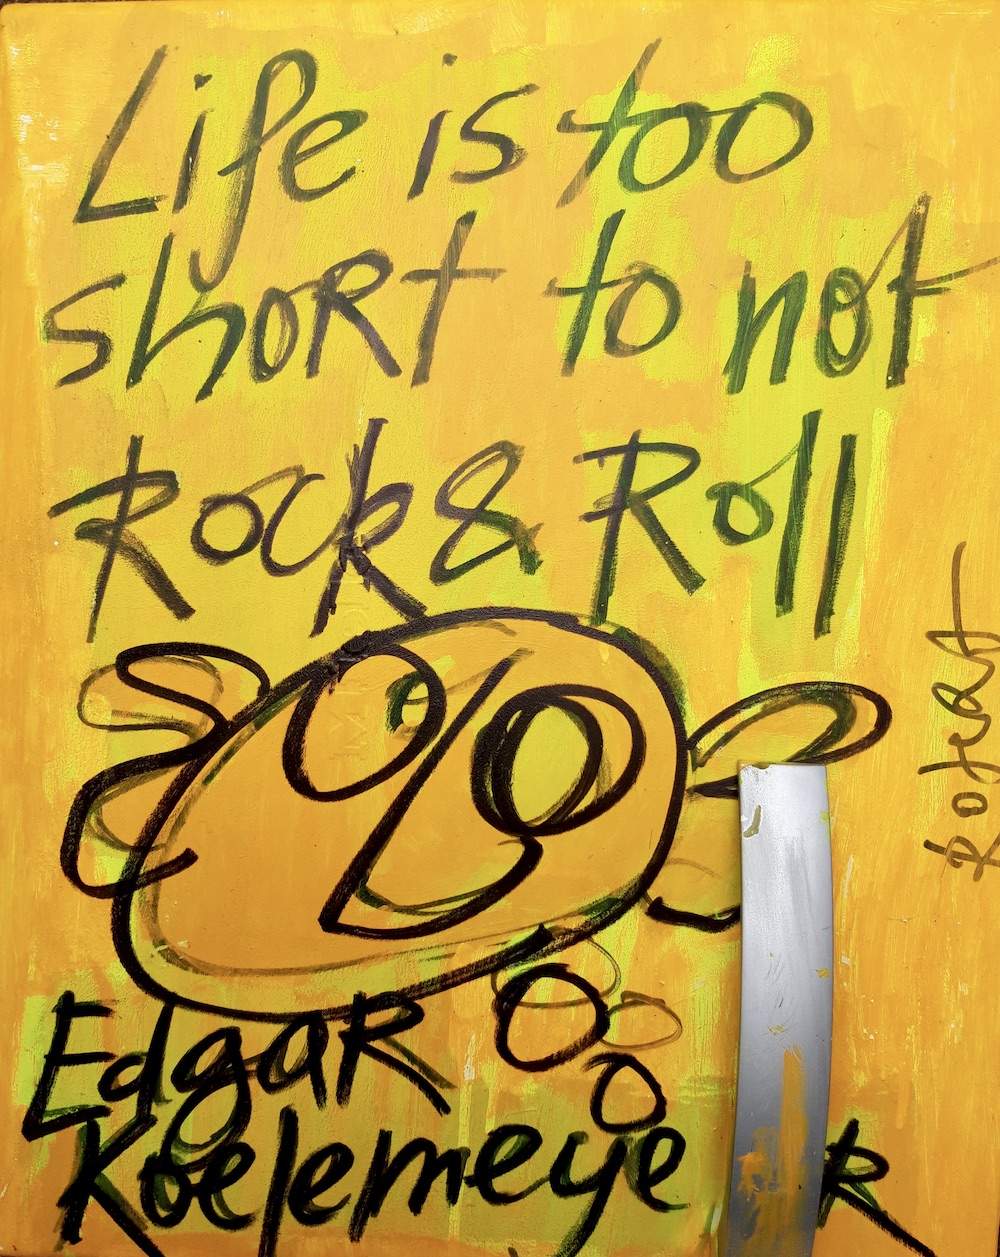 Life is too
short to not
Rock & Roll
Edgar
Koelemeyer
Robert